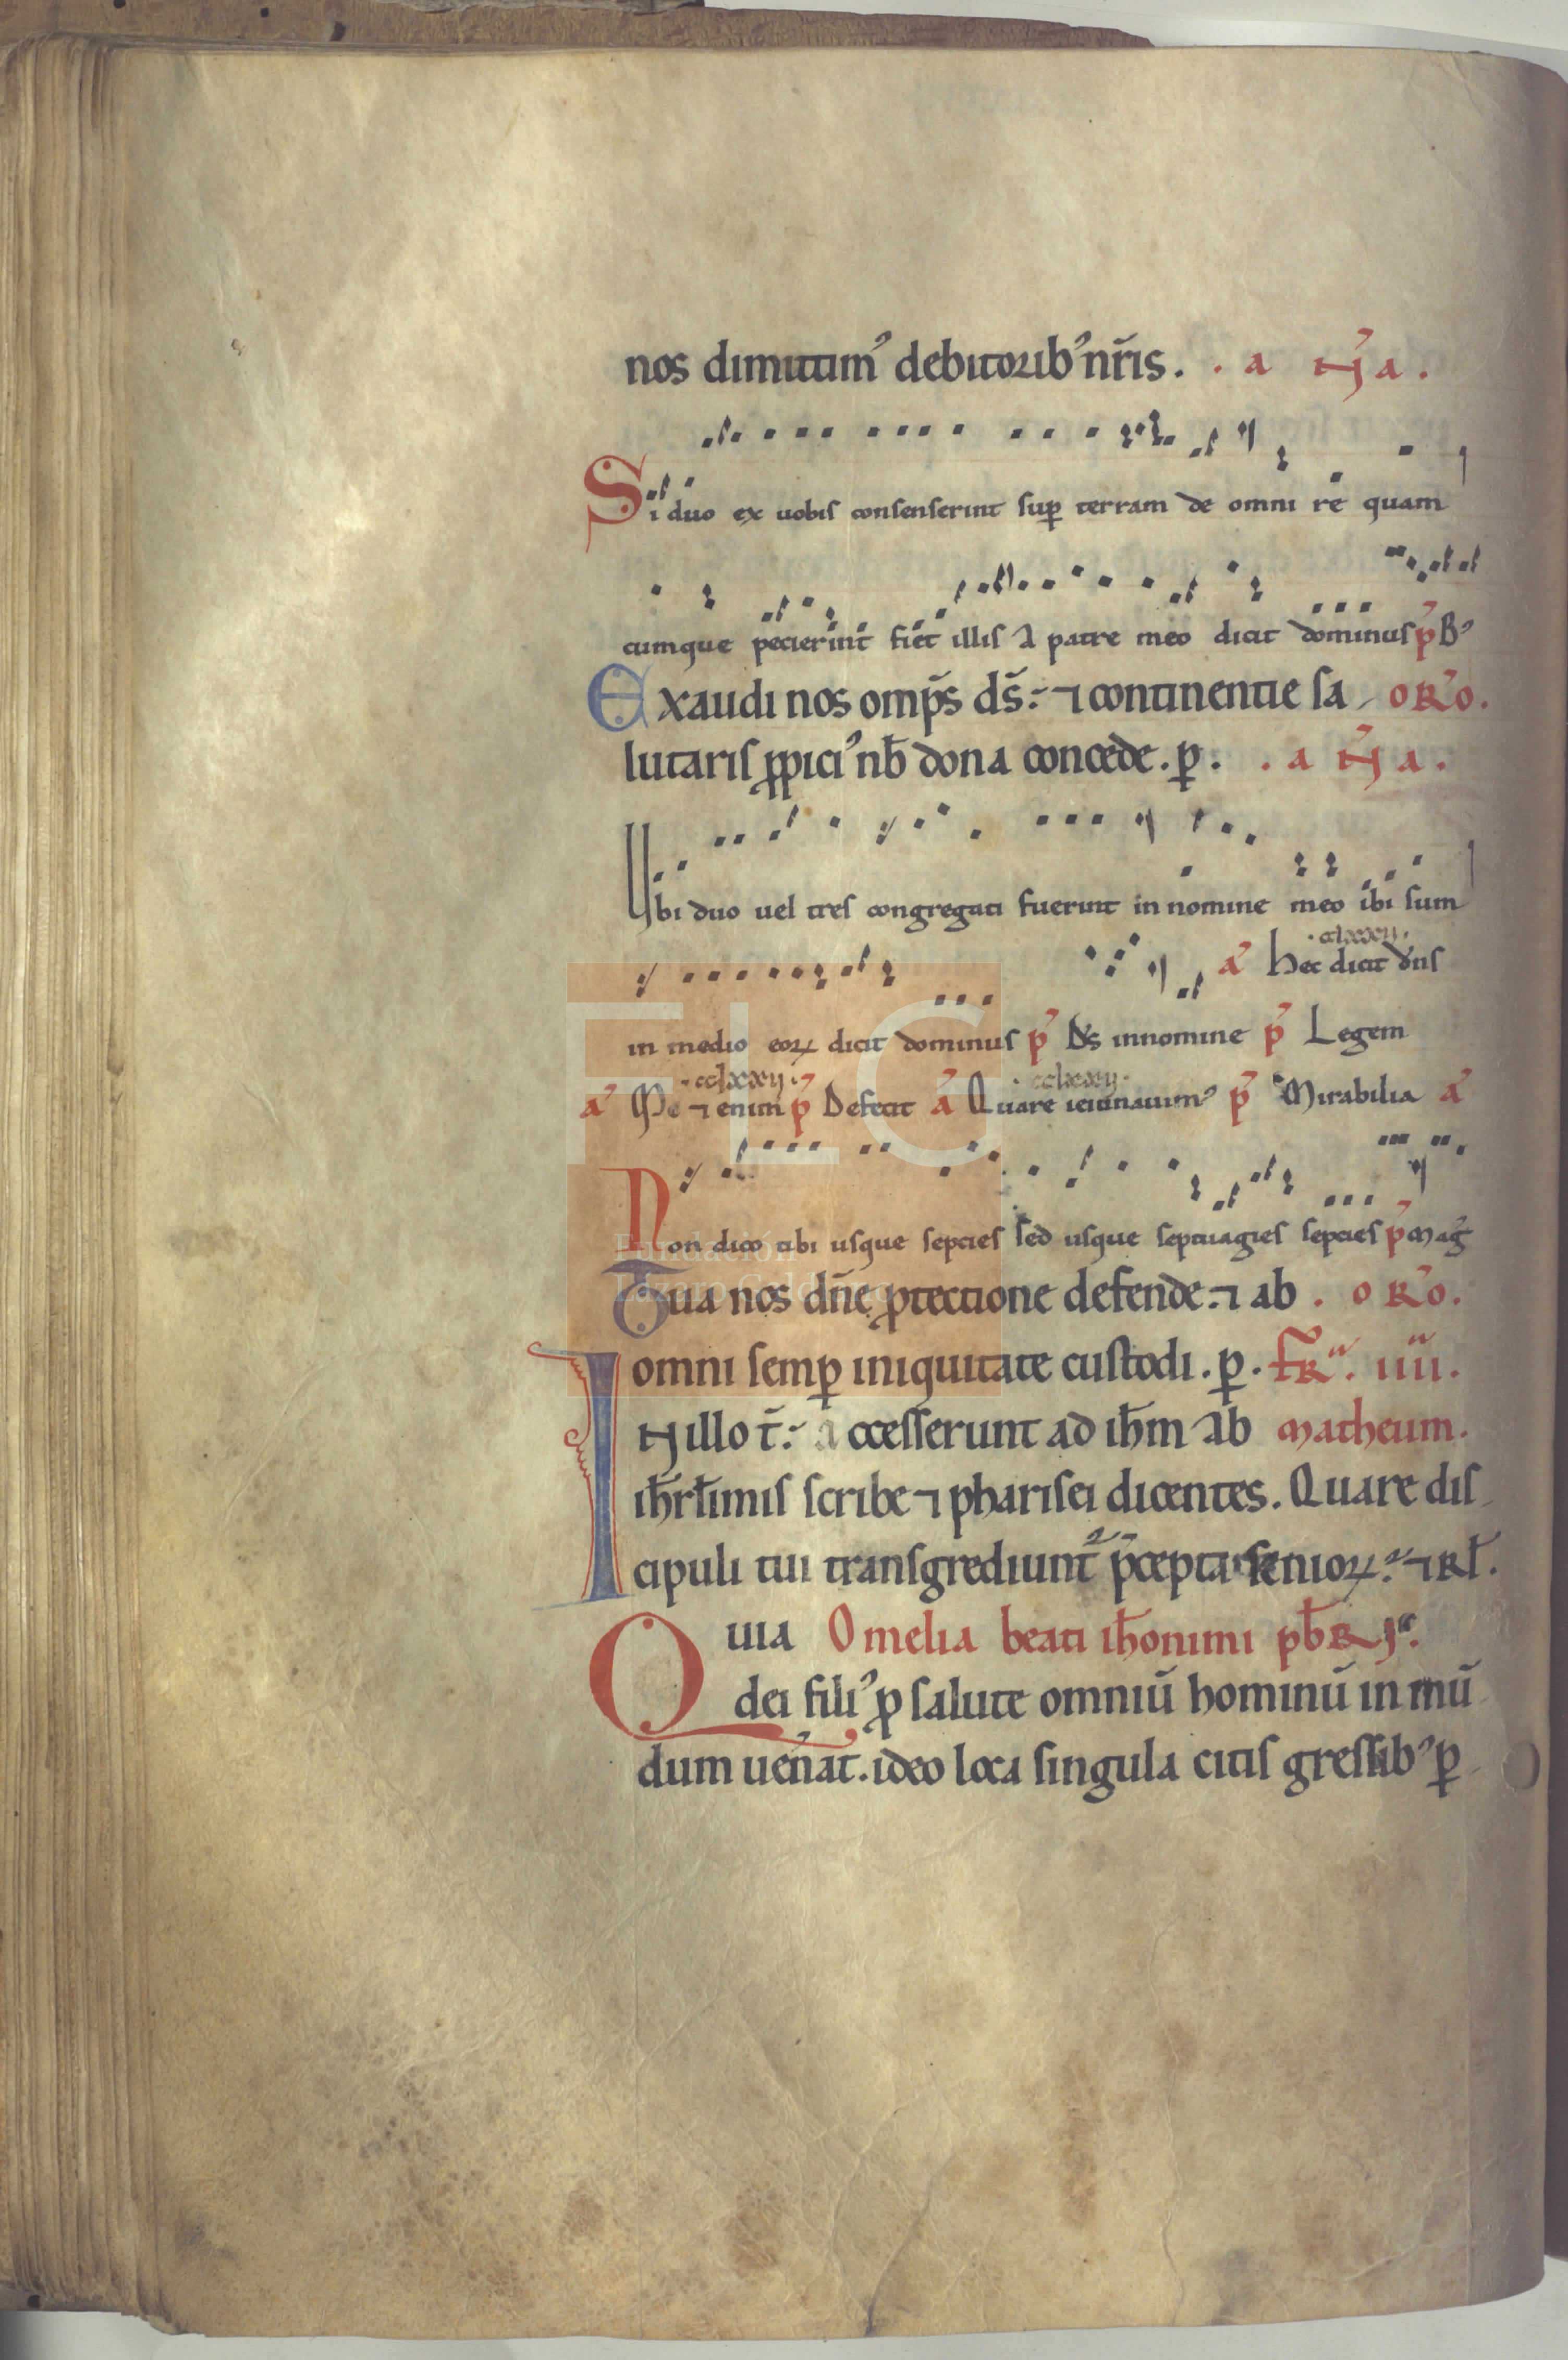 nos dimittimꝰ debitoribꝰ nr̄is. . a Nꝰ a.
Si duo ex uobis consenserint suꝑ terram de omni re quam
cumque pecierint fiet illis a patre meo dicit dominus p̄ Bꝰ
Exaudi nos omp̄s ds̄: ⁊ continentie sa oRꝰo.
lutaris ꝓpiciꝰ nb̄ dona concede. ꝑ. . a Nꝰ a.
Ubi duo uel tres congregati fuerint in nomine meo ibi sum
aꝰ hec dicit dn̄s
.cclxxxij.
in medio eoꝝ dicit dominus pꝰ Ds̄ innomine pꝰ Legem
.cclxxxij. .cclxxxij.
aꝰ Me ⁊enim pꝰ Defecit aꝰ Quare ieiunauimꝰ pꝰ Mirabilia aꝰ
Non dico tibi usque septies sed usque septuagies septies pꝰ magꝰ
Tua nos dn̄e ꝓtectione defende: ⁊ ab . oRꝰo.
omni semꝑ iniquitate custodi. ꝑ. fR̄ª. iiii.
IN illo t̄: accesserunt ad ih̄m ab matheum.
ih̄rl̄imis scribe ⁊ pharisei dicentes. Quare dis
cipuli tui transgrediunt᷑ p̄cepta senioꝝ: ⁊ Rl̄.
Quia Omelia beati ih̄onimi pb̄R̄j.
dei filiꝰ ꝓ salute omniū hominū in mū
dum uen̾at. ideo loca singula citis gressibꝰ ꝑ
FLG
Fundación
Lázaro Galdiano